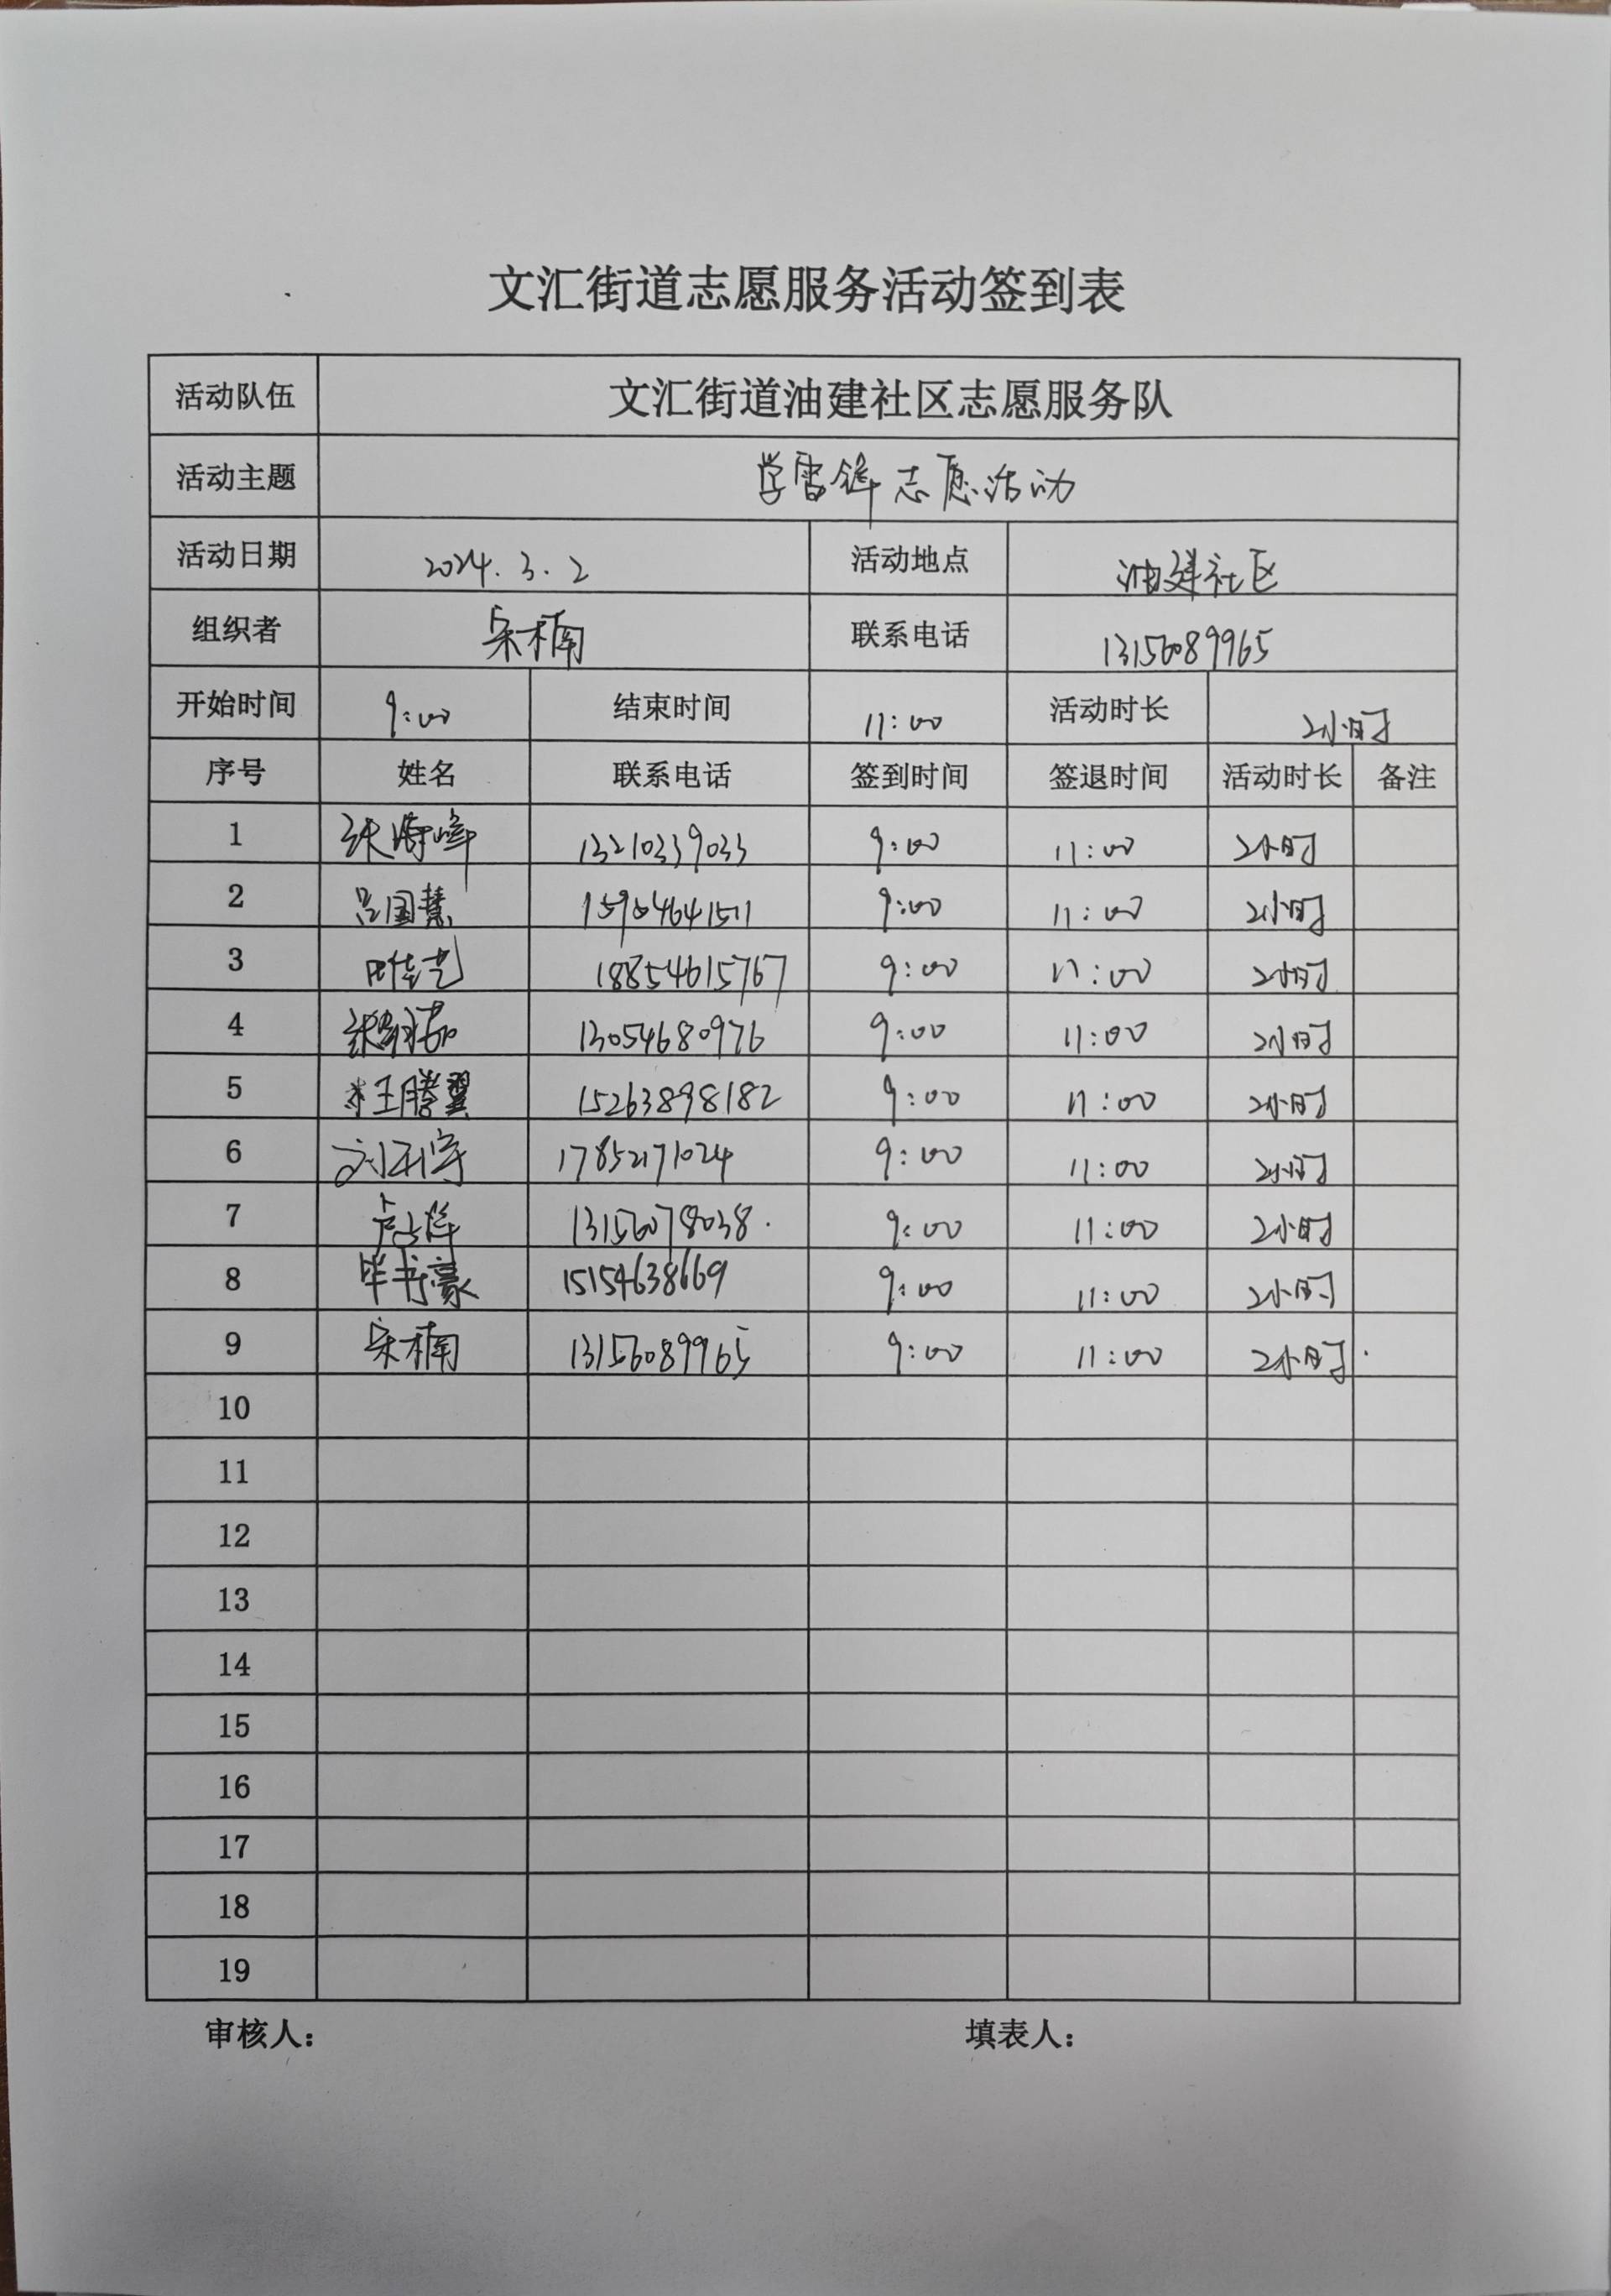 文汇街道志愿服务活动签到表
活动队伍 文汇街道油建社区志愿服务队
活动主题 学雷锋志愿活动
活动日期 2024.3.2 活动地点 油建社区
组织者 宋楠 联系电话 13156089965
开始时间 9:00 结束时间 11:00 活动时长 2小时
序号 姓名 联系电话 签到时间 签退时间 活动时长 备注
1 13210339033 9:00 11:00 2小时
2 吕国慧 15954641511 9:00 11:00 2小时
3 叶佳艺 18854615767 9:00 11:00 2小时
4 13054680976 9:00 11:00 2小时
5 王腾翼 15263898182 9:00 11:00 2小时
6 17852171024 9:00 11:00 2小时
7 13156078038. 9:00 11:00 2小时
8 毕书豪 15154638669 9:00 11:00 2小时
9 宋楠 13156089965 9:00 11:00 2小时.
10
11
12
13
14
15
16
17
18
19
审核人： 填表人：